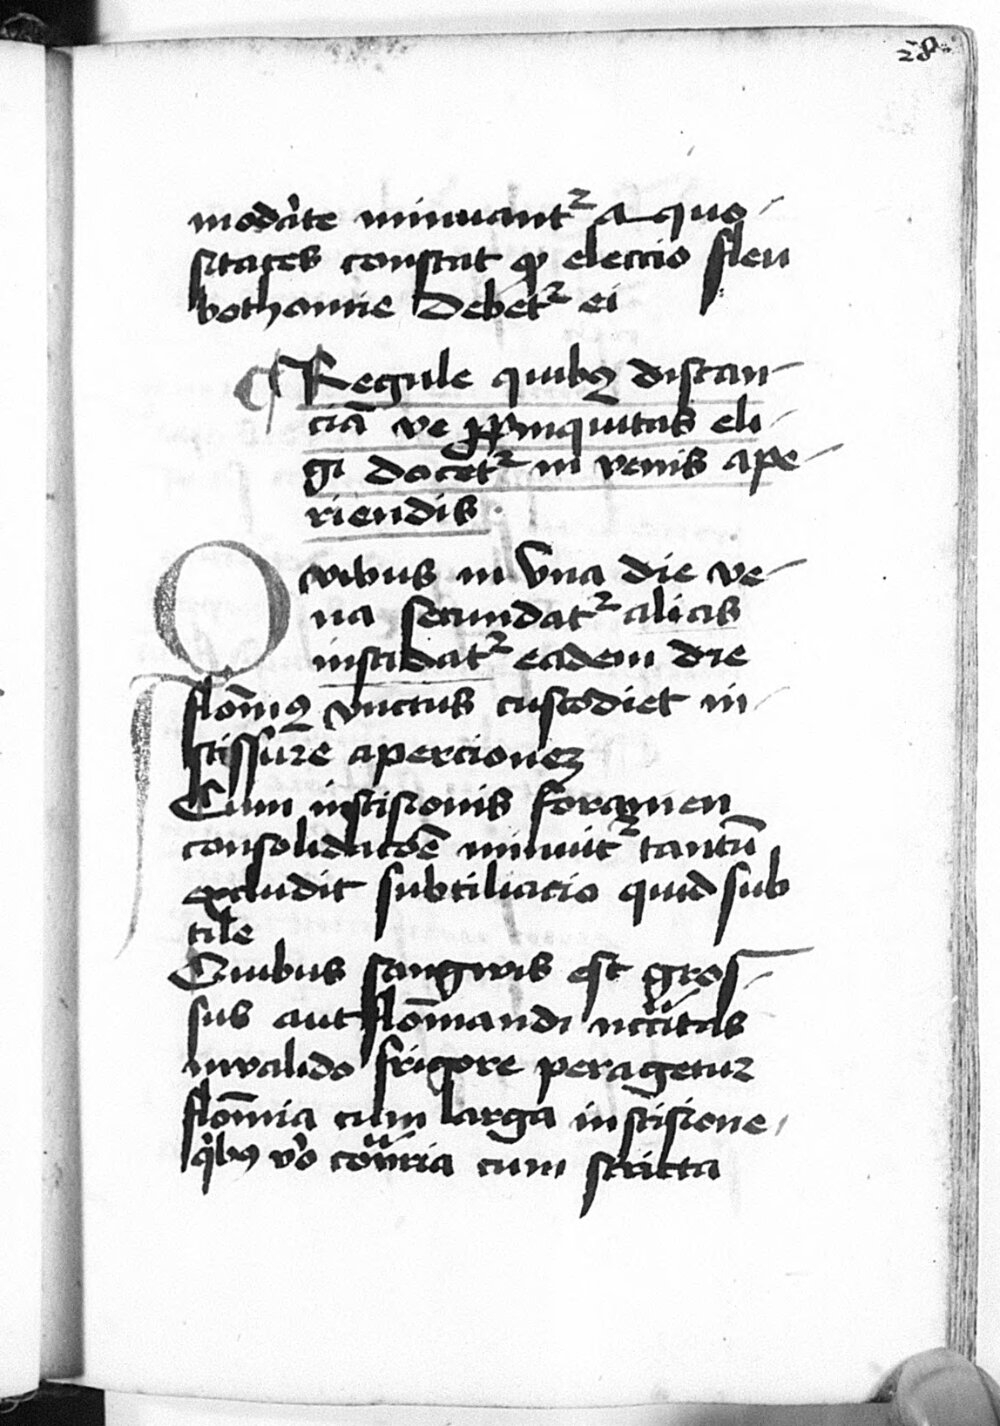 28
modate minuant a quo
sitates constat q eleccio fleu
bothomie debet ei
Regule quibus distan
cia ve ppinquitas eli
gi docet in venis ape
riendis
Quibus in una die ve
na secundat alicis
inscidat eadem die
flomus unctus custodiet in
scissure apercionem
Cum inscisionis foramen
consolidacoe minuit tantu
excludit subtiliacio quid sub
tile
Quibus sangwis est gros
sus aut flomandi nccitas
invalido frigore peragetur
flomia cum larga inscisione
qbus vo coria cum stricta